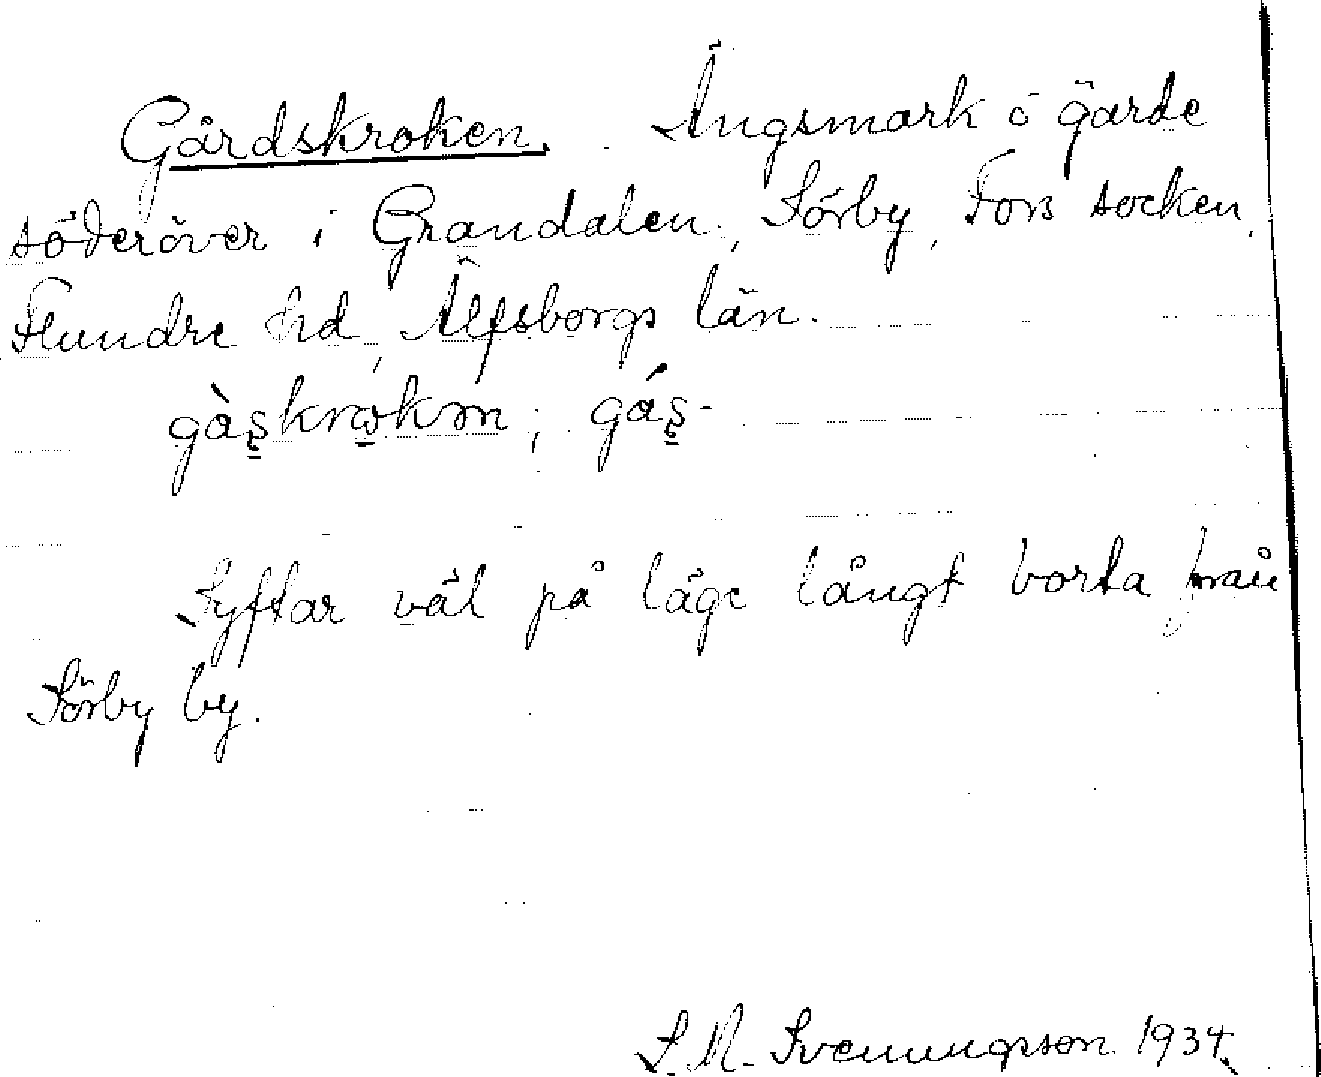 Gårdskroken. Ängsmark o gärde
söderöver i Grandalen, Sörby, Fors socken,
Flundre hd, Älfsborgs län.
gàs̱krωkən; gás̱-
Syftar väl på läge långt borta från
Sörby by.
S. N. Svenungsson 1934.